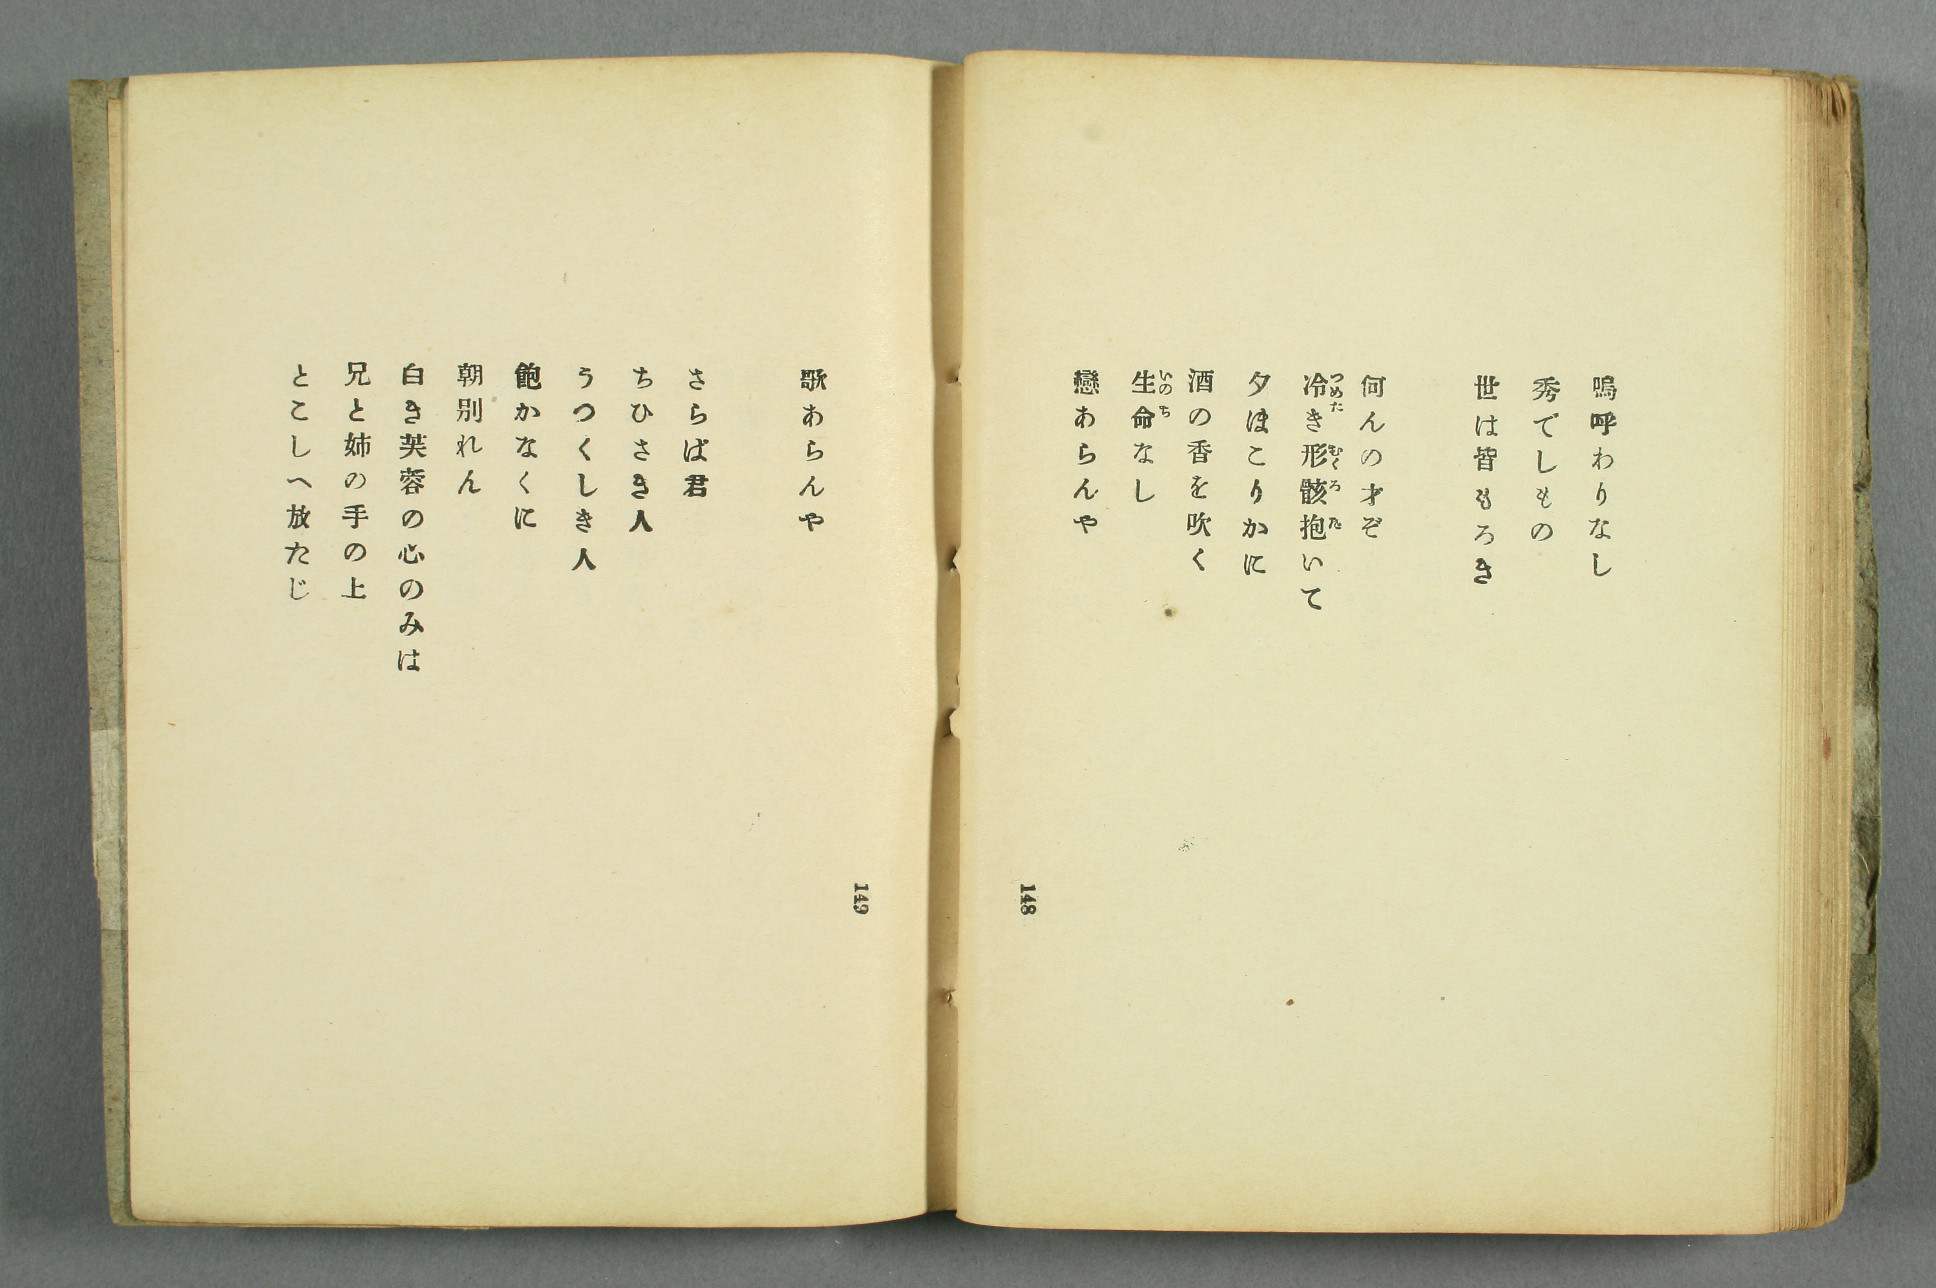 嗚呼わりなし
秀でしもの
世は皆もろき
何んの才ぞ
冷き形骸抱いて
つめた むくろ だ
夕ほこりかに
酒の香を吹く
生命なし
いのち
戀あらんや
148
歌あらんや
さらば君
ちひさき人
うつくしき人
飽かなくに
朝別れん
白き芙蓉の心のみは
兄と姉の手の上
とこしへ放たじ
149